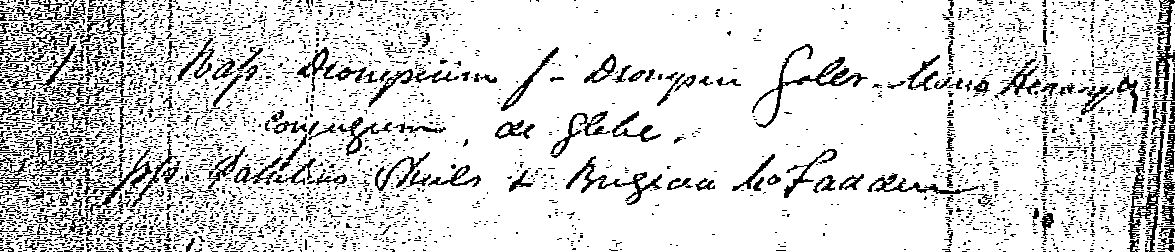 1 Bap. Dionysium f. Dionysii Goler. Maria
conjugum de Glebe.
pp. Patritius & Brigida McFadden